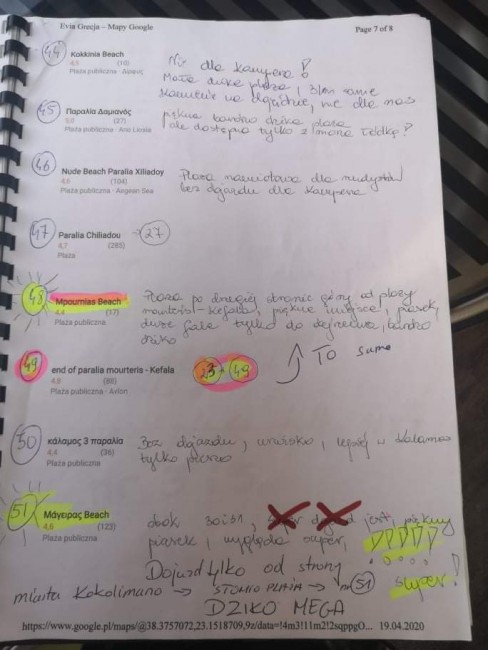 Evia Grecja – Mapy Google Page 7 of 8
44 Kokkinia Beach
4,5 (10)
Plaża publiczna · Λιμνη
Nie dla kampera!
Mała dzika plaża, 3km
kamienie na dojeździe, nie dla nas
45 Παραλία Δαμιανός
5,0 (27)
Plaża publiczna
piękna bardzo dzika plaża
ale dostępna tylko z łódką!
46 Nude Beach Paralia Xiliadoy
4,6 (104)
Plaża publiczna · Aegean Sea
Plaża dla nudystów
bez dojazdu dla kampera
47 Paralia Chiliadou → 27
4,7 (285)
Plaża
48 Mpournias Beach
4,4 (17)
Plaża publiczna
Plaża po drugiej stronie góry od plaży
mourteri - Kefala, piękne miejsce, piasek,
duże fale tylko do, bardzo
dziko
49 end of paralia mourteris - Kefala
4,8 (88)
Plaża publiczna · Avlon
23 + 49
TO samo
50 κάλαμος 3 παραλία
4,4 (36)
Plaża publiczna
Bez dojazdu, lepiej w Kalamos
tylko pieszo
51 Μάγειρας Beach
4,6 (123)
Plaża publiczna
obok 30 i 31, jest, piękny
piasek, wygląda super,
Dojazd tylko od strony
miasta Kokolimano → → na 51 super!
DZIKO MEGA
https://www.google.pl/maps/@38.3757072,23.1518709,9z/data=!4m3!11m2!2sqppgO... 19.04.2020